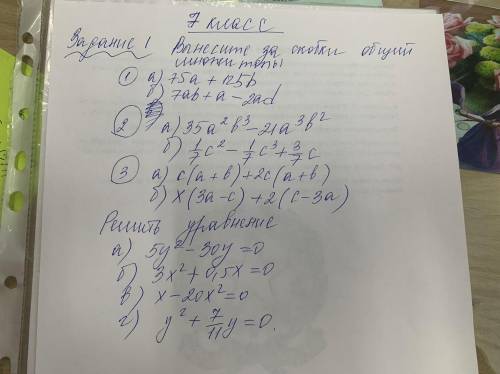 7 класс
Задание 1 Вынесите за скобки общий
множитель
1 а) 75a + 125b
б) 7ab + a - 2ad
2 а) 35a²b³ - 21a³b²
б) 1/7 c² - 1/7 c³ + 3/7 c
3 а) c(a+b) + 2c(a+b)
б) x(3a-c) + 2(c-3a)
Решить уравнение
а) 5y² - 30y = 0
б) 3x² + 0,5x = 0
в) x - 20x² = 0
г) y² + 7/11 y = 0.